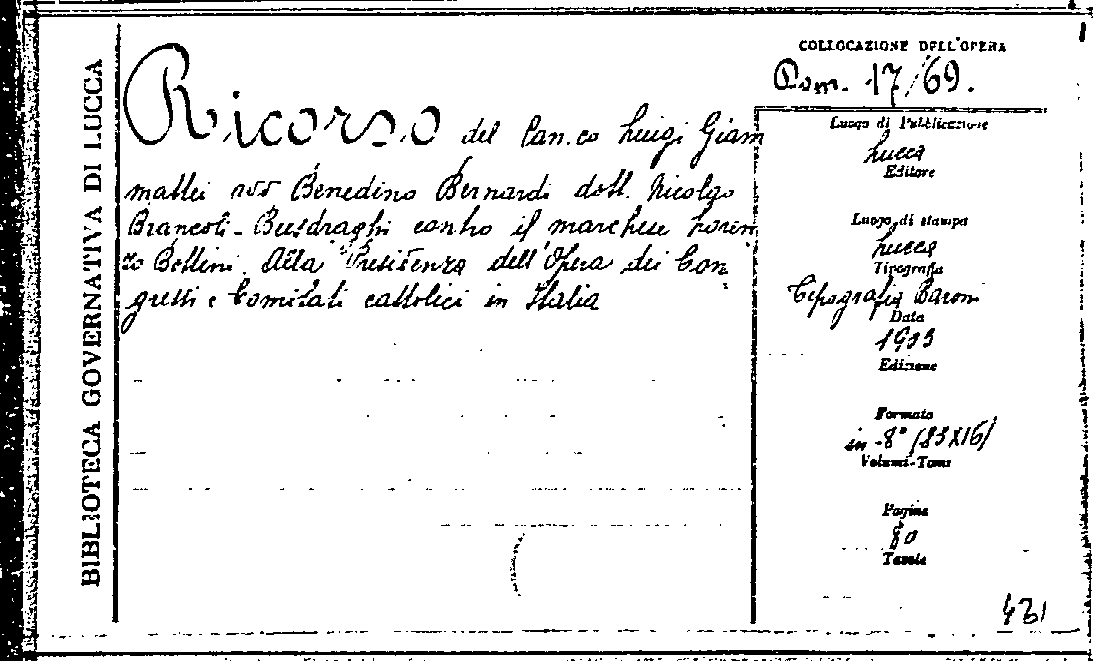 BIBLIOTECA GOVERNATIVA DI LUCCA
Ricorso del Can.co Luigi Giam
mattei avv Benedino Bernardi dott. Nicolao
Brancoli-Busdraghi contro il marchese Loren
zo Bottini. Alla Presidenza dell'Opera dei Con
gressi e Comitati cattolici in Italia
COLLOCAZIONE DELL'OPERA
17/69.
Luogo di Pubblicazione
Lucca
Editore
Luogo di stampa
Lucca
Tipografia
Tipografia Baroni
Data
1903
Edizione
Formato
in-8° (23X16)
Volumi-Tomi
Pagine
80
Tavole